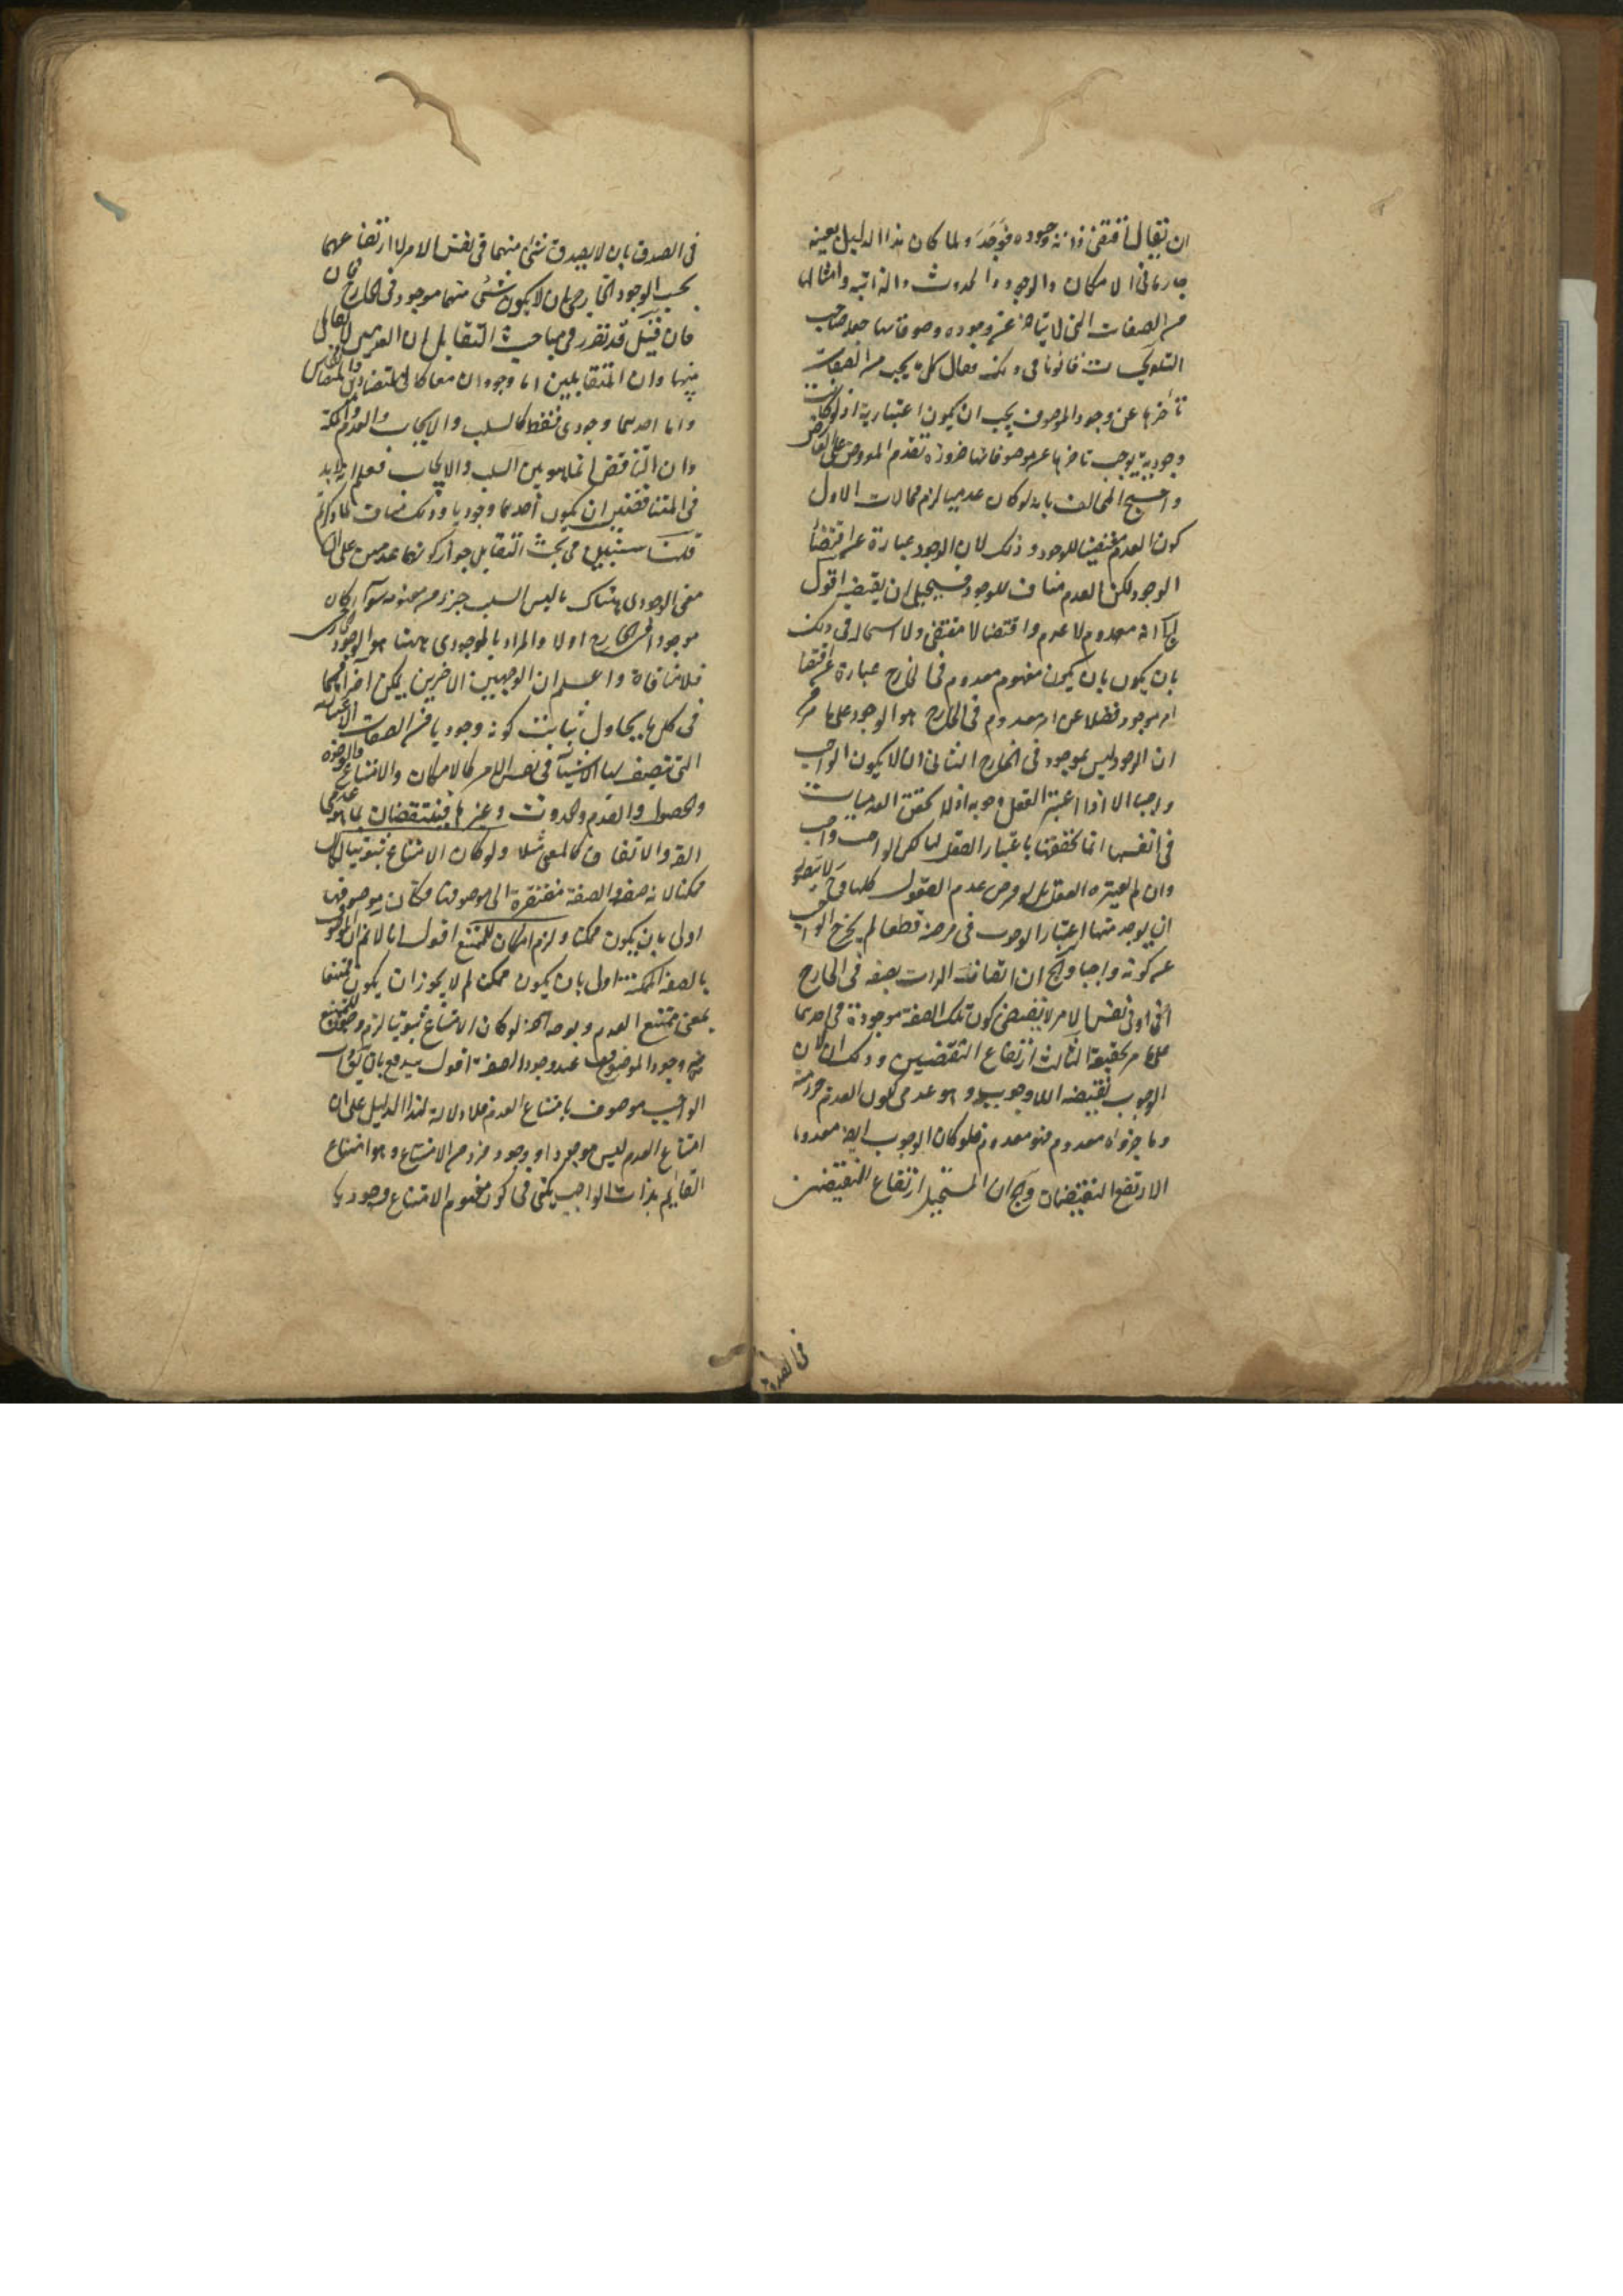 ان يقال اقتضى ذاته وجوده فوجد ولما كان هذا الدليل بعينه
جاريا فى الامكان والوجود والحدوث والذاتية وامثالها
من الصفات التى لا يتأخر عن وجوده موصوفاتها جعله صاحب
التلويحات قانونا فى ذلك فقال كل ما يجب من الصفات
تأخرها عن وجود الموصوف يجب ان يكون اعتبارية اذ لو كانت
وجودية يوجب تاخرها عن موصوفاتها ضرورة تقدم المعروض على العارض
واحتج المخالف بانه لو كان عدميا لزم محالات الاول
كون العدم مقتضيا للوجود وذلك لان الوجوب عبارة عن اقتضاء
الوجود لكن العدم مناف للوجود فيستحيل ان يقتضيه اقول
انه معدوم لا عدم واقتضاء لا مقتضى ولا استحالة فى ذلك
بان يكون مفهوم معدوم فى الخارج عبارة عن اقتضاء
امر موجود فضلا عن امر معدوم فى الخارج هو الوجود على ما مر
ان الوجود ليس بموجود فى الخارج الثانى ان لا يكون الواجب
واجبا الا اذا اعتبر العقل وجوبه اذ لا تحقق للعدميات
فى انفسها انما تحققها باعتبار العقل لها لكن الواجب واجب
وان لم يعتبره العقل بل لو فرض عدم العقول كلها
ان يوجد منها اعتبار الوجوب فى فرضه قطعا لم يخرج الواجب
عن كونه واجبا ان اتصاف الذات بصفة فى الخارج
او فى نفس الامر لا يقتضى كون تلك الصفة موجودة فى احدهما
على ما مر تحقيقه الثالث ارتفاع النقيضين وذلك لان
الوجوب نقيضه اللاوجوب وهو عدمى لكون العدم جزء منه
وما جزؤه معدوم فهو معدوم فلو كان الوجوب ايضا معدوما
لارتفع النقيضان ان المستحيل ارتفاع النقيضين
فى الصدق
فى الصدق بان لا يصدق شئ منهما فى نفس الامر لا ارتفاعهما
بحسب الوجود الخارجى بان لا يكون شئ منهما موجود فى الخارج
فان قيل قد تقرر فى مباحث التقابل ان العدمين لا تقابل
بينهما وان المتقابلين اما وجوديان معا كما فى المتضادين والمتضايفين
واما احدهما وجودى فقط كالسلب والايجاب والعدم والملكة
وان التناقض انما هو بين السلب والايجاب فعلم انه لا بد
فى المتناقضين ان يكون احدهما وجوديا وذلك مناف لما ذكرتم
قلنا سنبين فى بحث التقابل جواز كونهما عدميين على ان
معنى الوجودى هناك ما ليس السلب جزء من مفهومه سواء كان
موجودا فى الخارج اولا والمراد بالوجودى هاهنا هو الموجود الخارجى
فلا منافاة واعلم ان الوجهين الاخيرين يمكن اجراؤهما
فى كل ما يحاول اثبات كونه وجوديا من الصفات الاعتبارية
التى تتصف بها الاشياء فى نفس الامر كالامكان والامتناع
والحصول والقدم والحدوث وغيرها فينتقضان بما هو عدمى
والاتفاق كالعمى مثلا ولو كان الامتناع ثبوتيا لكان
ممكنا لانه صفة والصفة مفتقرة الى موصوفها فكان موصوفها
اولى بان يكون ممكنا ولزم امكان الممتنع اقول انا لا نم ان الموصوف
بالصفة الممكنة اولى بان يكون ممكنا لم لا يجوز ان يكون ممتنعا
بمعنى ممتنع العدم وبوجه آخر لو كان الامتناع ثبوتيا لزم
وجود الموصوف عند وجود الصفة اقول يدفع بان
الواجب موصوف بامتناع العدم فلا دلالة لهذا الدليل على ان
امتناع العدم ليس موجودا ووجود فرد من الامتناع وهو امتناع
القائم بذات الواجب يكفى فى كون مفهوم الامتناع وجوديا